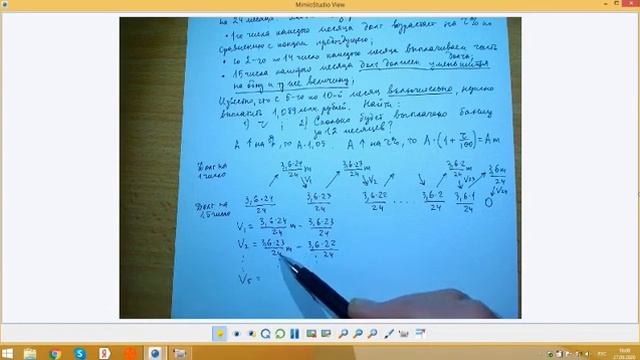 MimioStudio View
на 24 месяца.
• 1го числа каждого месяца долг возрастает на r% по
сравнению с концом предыдущего;
• со 2-го по 14 число каждого месяца выплачиваем часть
долга;
• 15 числа каждого месяца долг должен уменьшаться
на одну и ту же величину;
Известно, что с 5-го по 10-й месяц включительно, нужно
выплатить 1,089 млн. рублей. Найти:
1) r ; 2) Сколько будет выплачено банку
за 12 месяцев?
A ↑ на %, то A·1,05. A ↑ на r%, то A·(1 + r/100) = Am
Долг на
1 число
3,6·24/24 m 3,6·23/24 m 3,6·2/24 m 3,6·1/24 m
V₁ V₂ V₂₃ V₂₄
Долг на
15 число
3,6·24/24 3,6·23/24 3,6·22/24 .... 3,6·2/24 3,6·1/24 0
V₁ = 3,6·24/24 m − 3,6·23/24
V₂ = 3,6·23/24 m − 3,6·22/24
V₅ =
РУС
16:00
27.03.2020